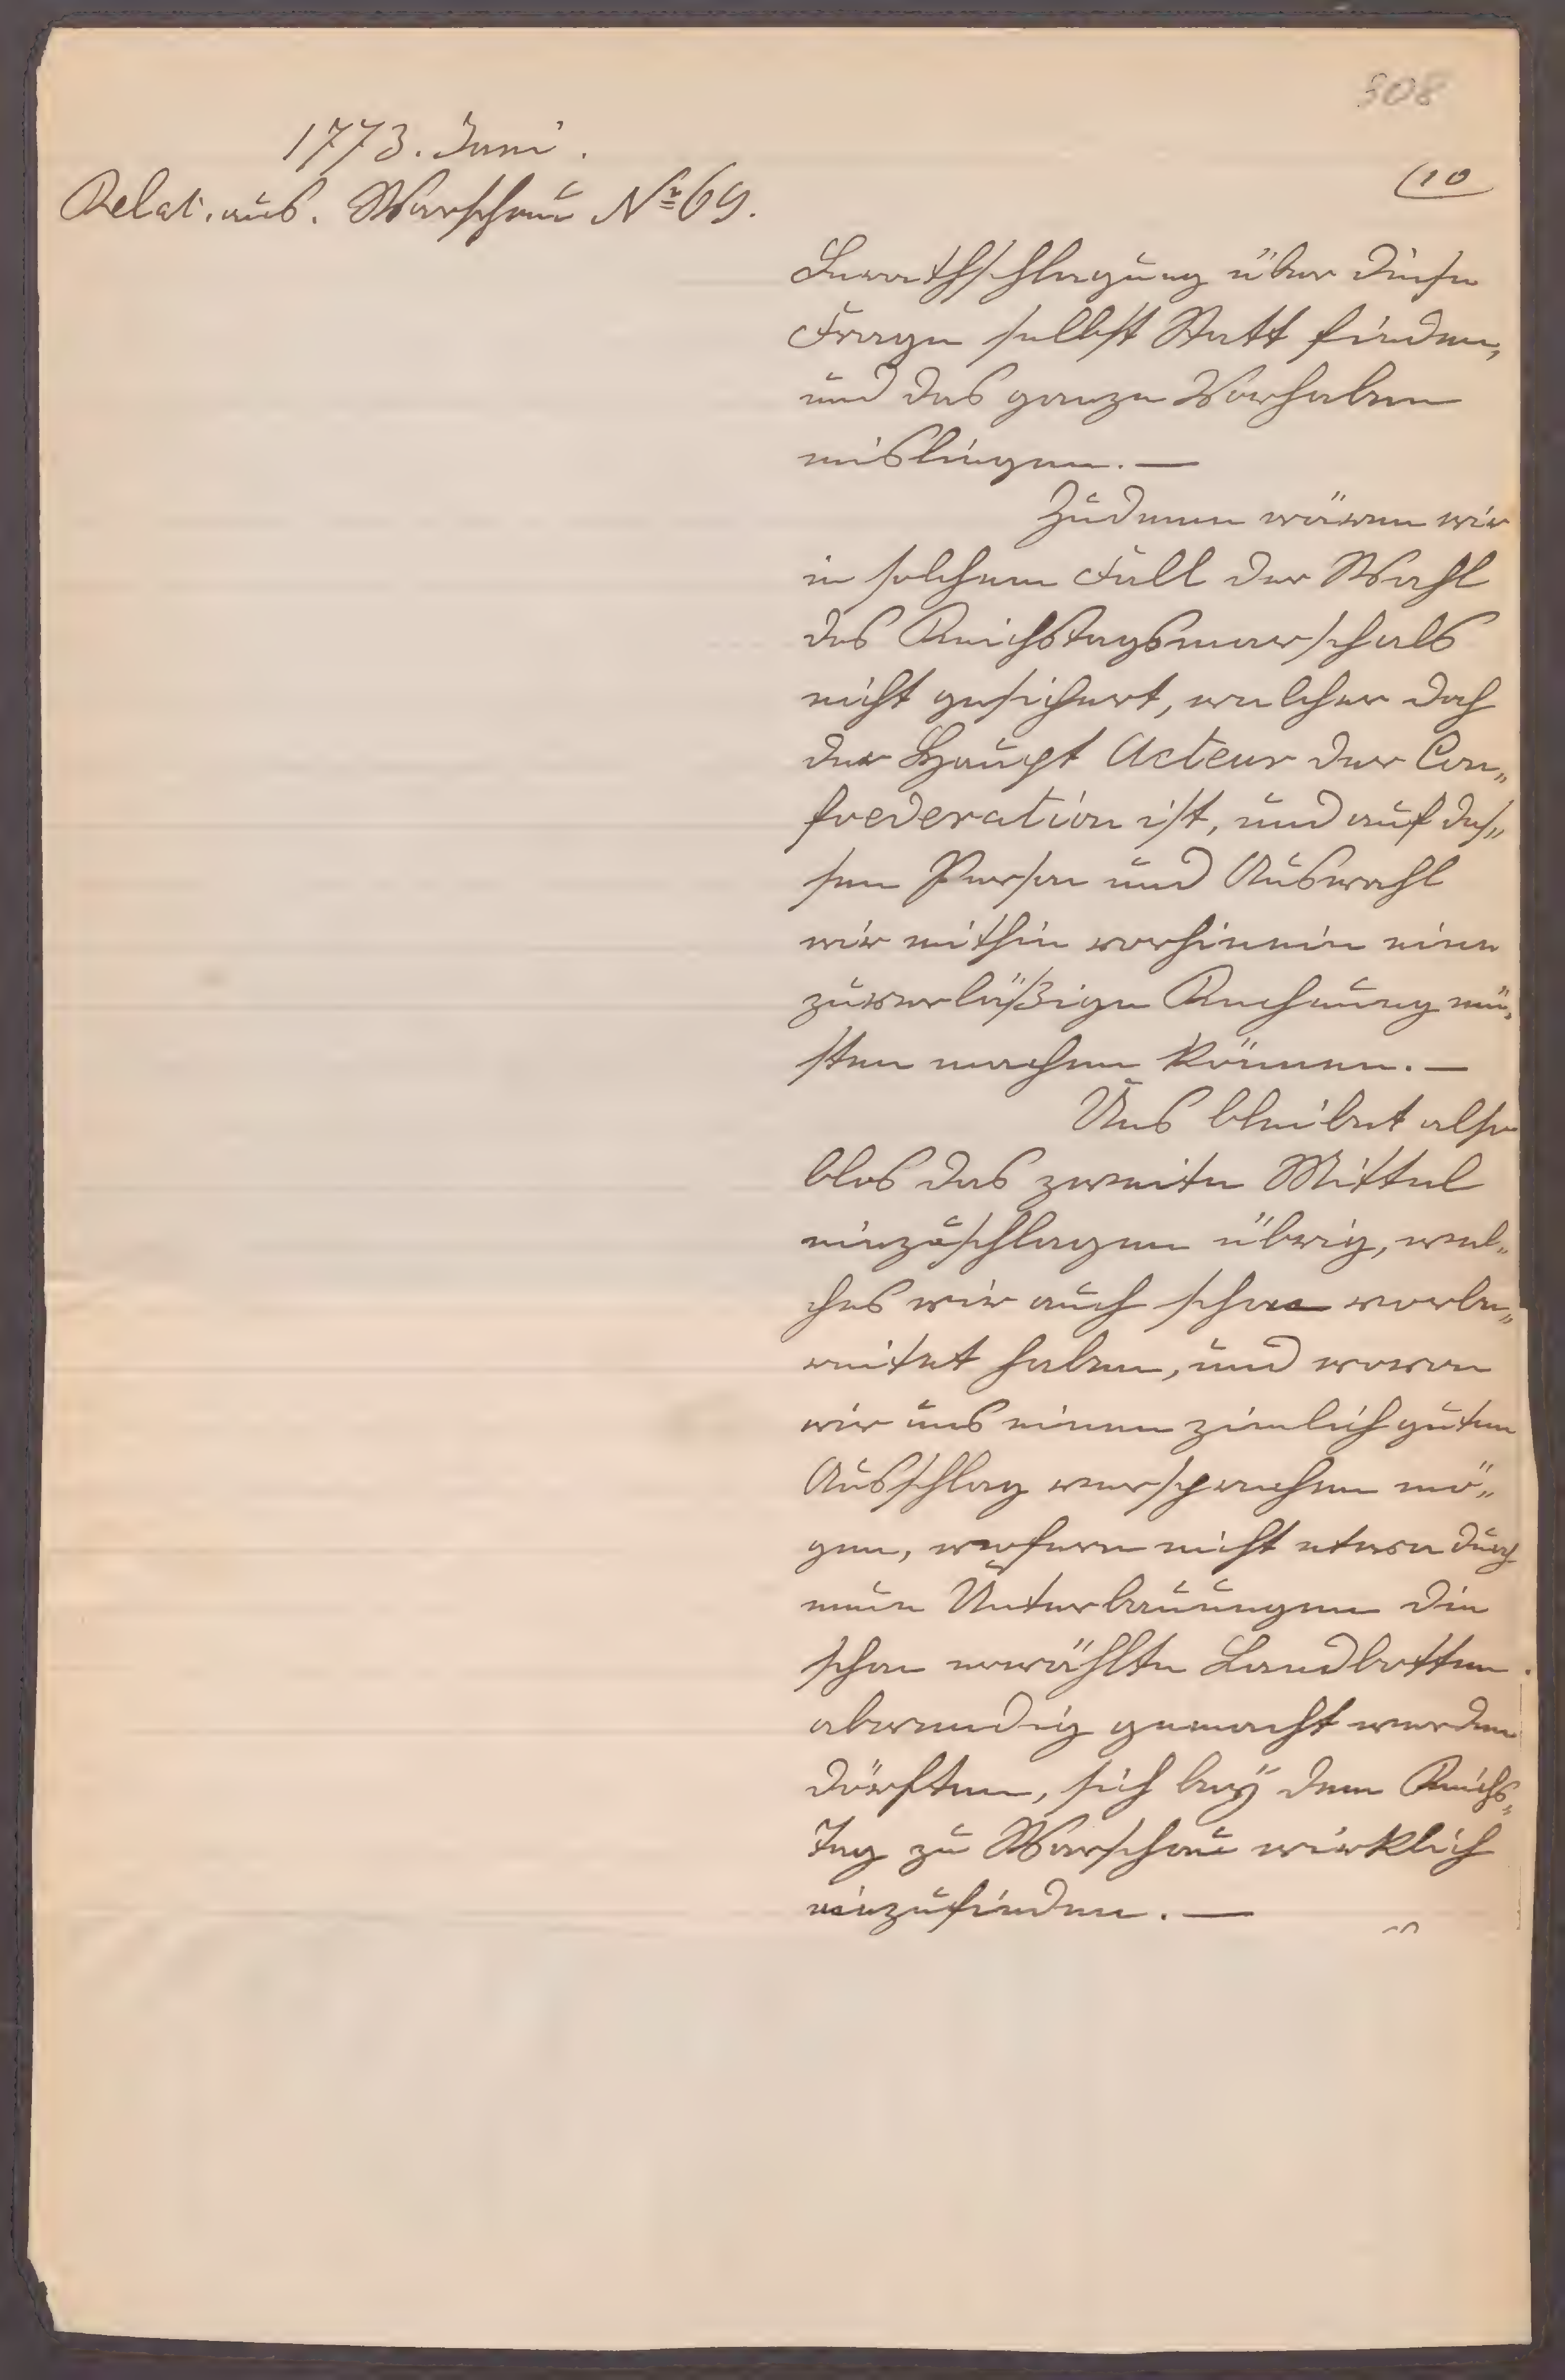 308
1773. Juni.
(10
Relat. aus. Warschau Nr 69.
Berathschlagung über diese
Frage selbst Statt finden,
und das ganze Vorhaben
mislingen. —
Zudeme wären wir
in solchem Fall der Wahl
des Reichstagsmarschals
nicht gesichert, welcher doch
der Haupt Acteur der Con„
foederation ist, und auf des„
sen Person und Auswahl
wir mithin vorhinein eine
zuverläßige Rechnung mü„
sten machen können. —
Uns bleibet also
blos das zweite Mittel
einzuschlagen übrig, wel„
ches wir auch schon vorbe„
reitet haben, und wovon
wir uns einen zimlich guten
Ausschlag versprechen mö„
gen, wofern nicht etwa durch
neue Unterbauungen die
schon erwählte Landbotten
abwendig gemacht werden
dörften, sich beÿ dem Reichs„
Tag zu Warschau wirklich
einzufinden. —